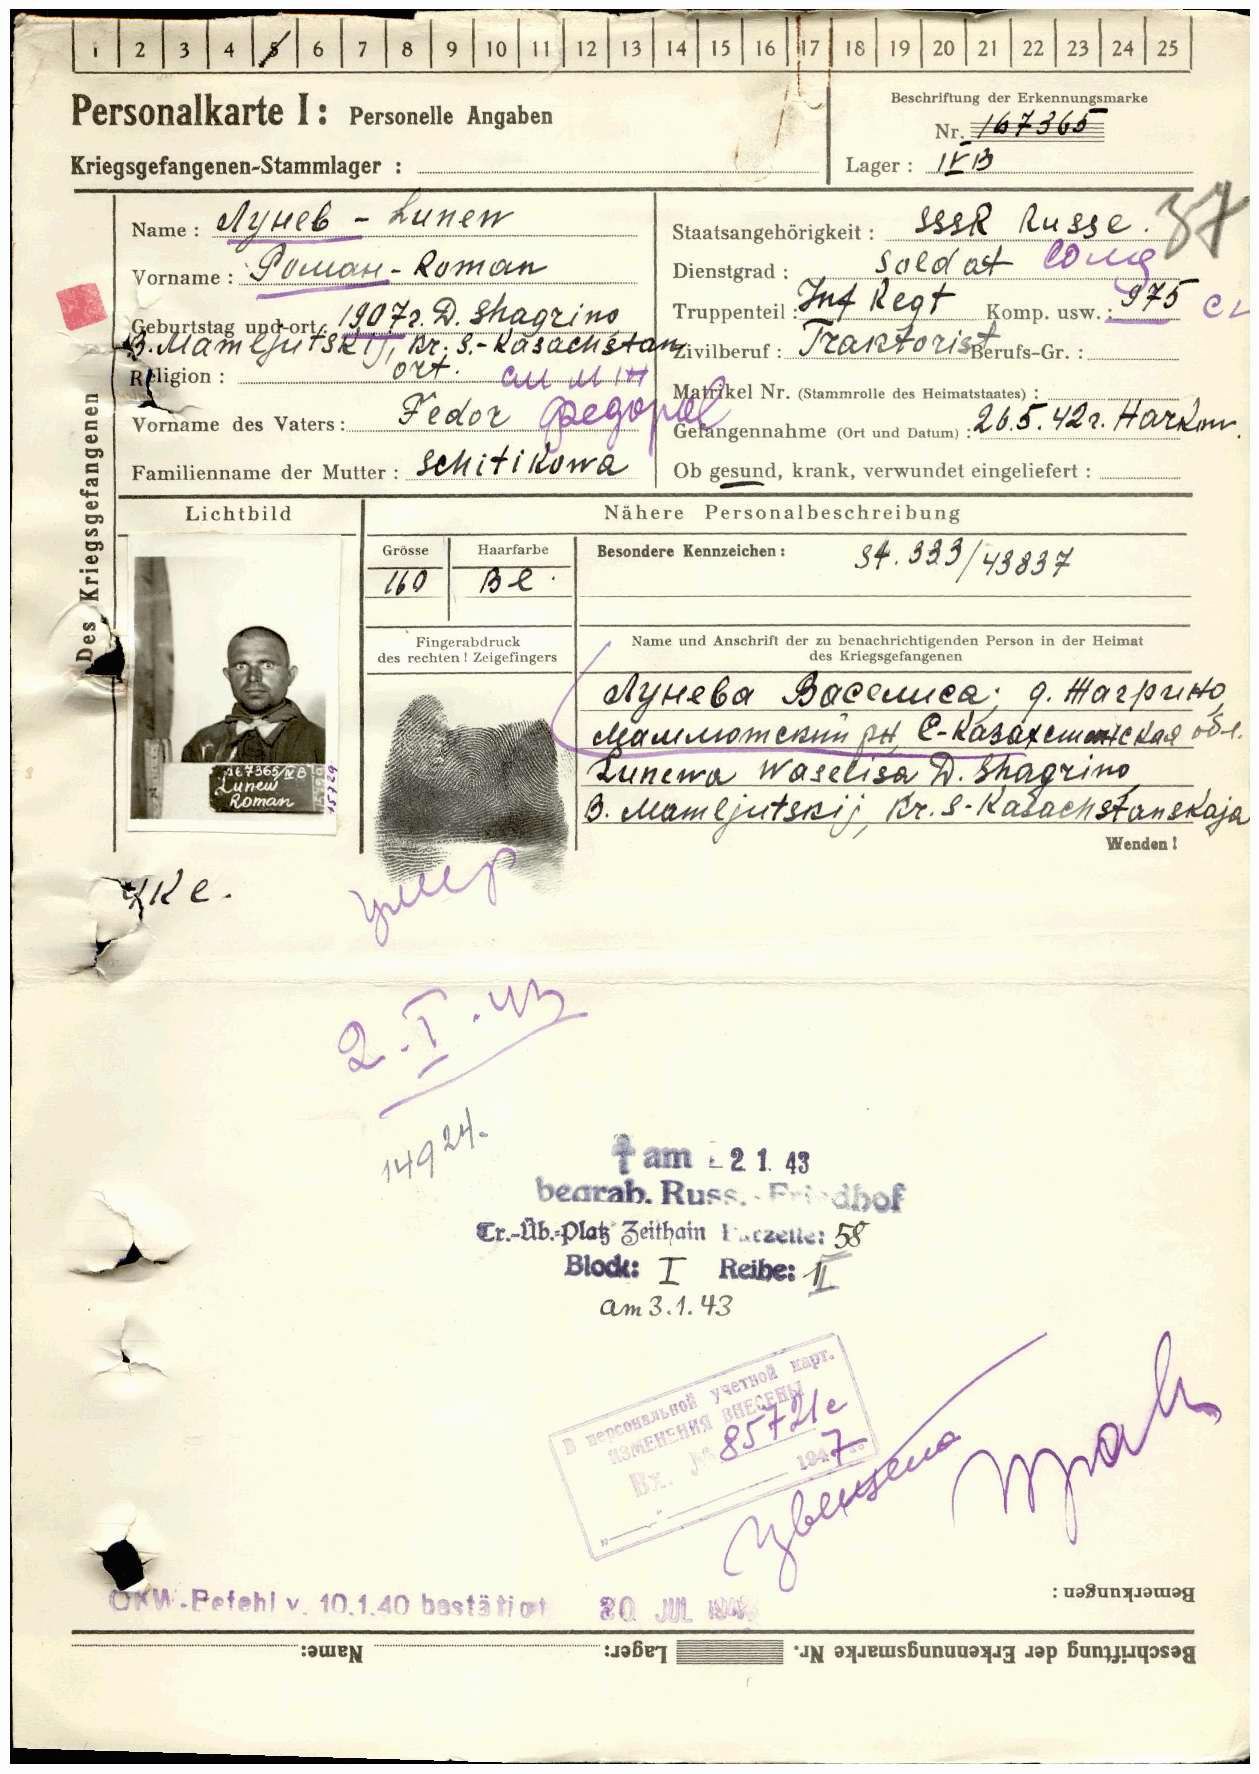 1 2 3 4 5 6 7 8 9 10 11 12 13 14 15 16 17 18 19 20 21 22 23 24 25
Personalkarte I: Personelle Angaben
Kriegsgefangenen-Stammlager :
Beschriftung der Erkennungsmarke
Nr. 167365
Lager : IVB
37
Des Kriegsgefangenen
Name : Лунев - Lunew
Vorname : Роман - Roman
Geburtstag und -ort : 1907г. D. Shagrino
B. Mamljutskij, Kr. S.-Kasachstan
ort.
Religion :
Vorname des Vaters : Fedor
Familienname der Mutter : Schitikowa
Staatsangehörigkeit : SSSR Russe.
Dienstgrad : Soldat солд
Truppenteil : Inf Regt Komp. usw. : 975
Zivilberuf : Traktorist Berufs-Gr. :
Matrikel Nr. (Stammrolle des Heimatstaates) :
Gefangennahme (Ort und Datum) : 26.5.42г. Harkow.
Ob gesund, krank, verwundet eingeliefert :
Lichtbild
Nähere Personalbeschreibung
Grösse
160
Haarfarbe
Bl.
Besondere Kennzeichen : St. 333/43837
Fingerabdruck
des rechten ! Zeigefingers
Name und Anschrift der zu benachrichtigenden Person in der Heimat
des Kriegsgefangenen
Лунева Васелиса, д. Жагрино,
Мамлютский рн, С-Казахстанская обл.
Lunewa Waselisa D. Shagrino
B. Mamljutskij, Kr. S-Kasachstanskaja
Wenden !
167365/IVB
Lunew
Roman
15729
умер
2.I.43
14924.
† am 2 1. 43
bearab. Russ.-Friedhof
Tr.-Üb.-Platz Zeithain Parzelle: 58
Block: I Reihe: II
am 3.1.43
В персональной учетной карт.
ИЗМЕНЕНИЯ ВНЕСЕНЫ
Вх. № 85721с
1947
OKW-Befehl v. 10.1.40 bestätigt 30 JUL 194
Bemerkungen :
Beschriftung der Erkennungsmarke Nr. Lager: Name: